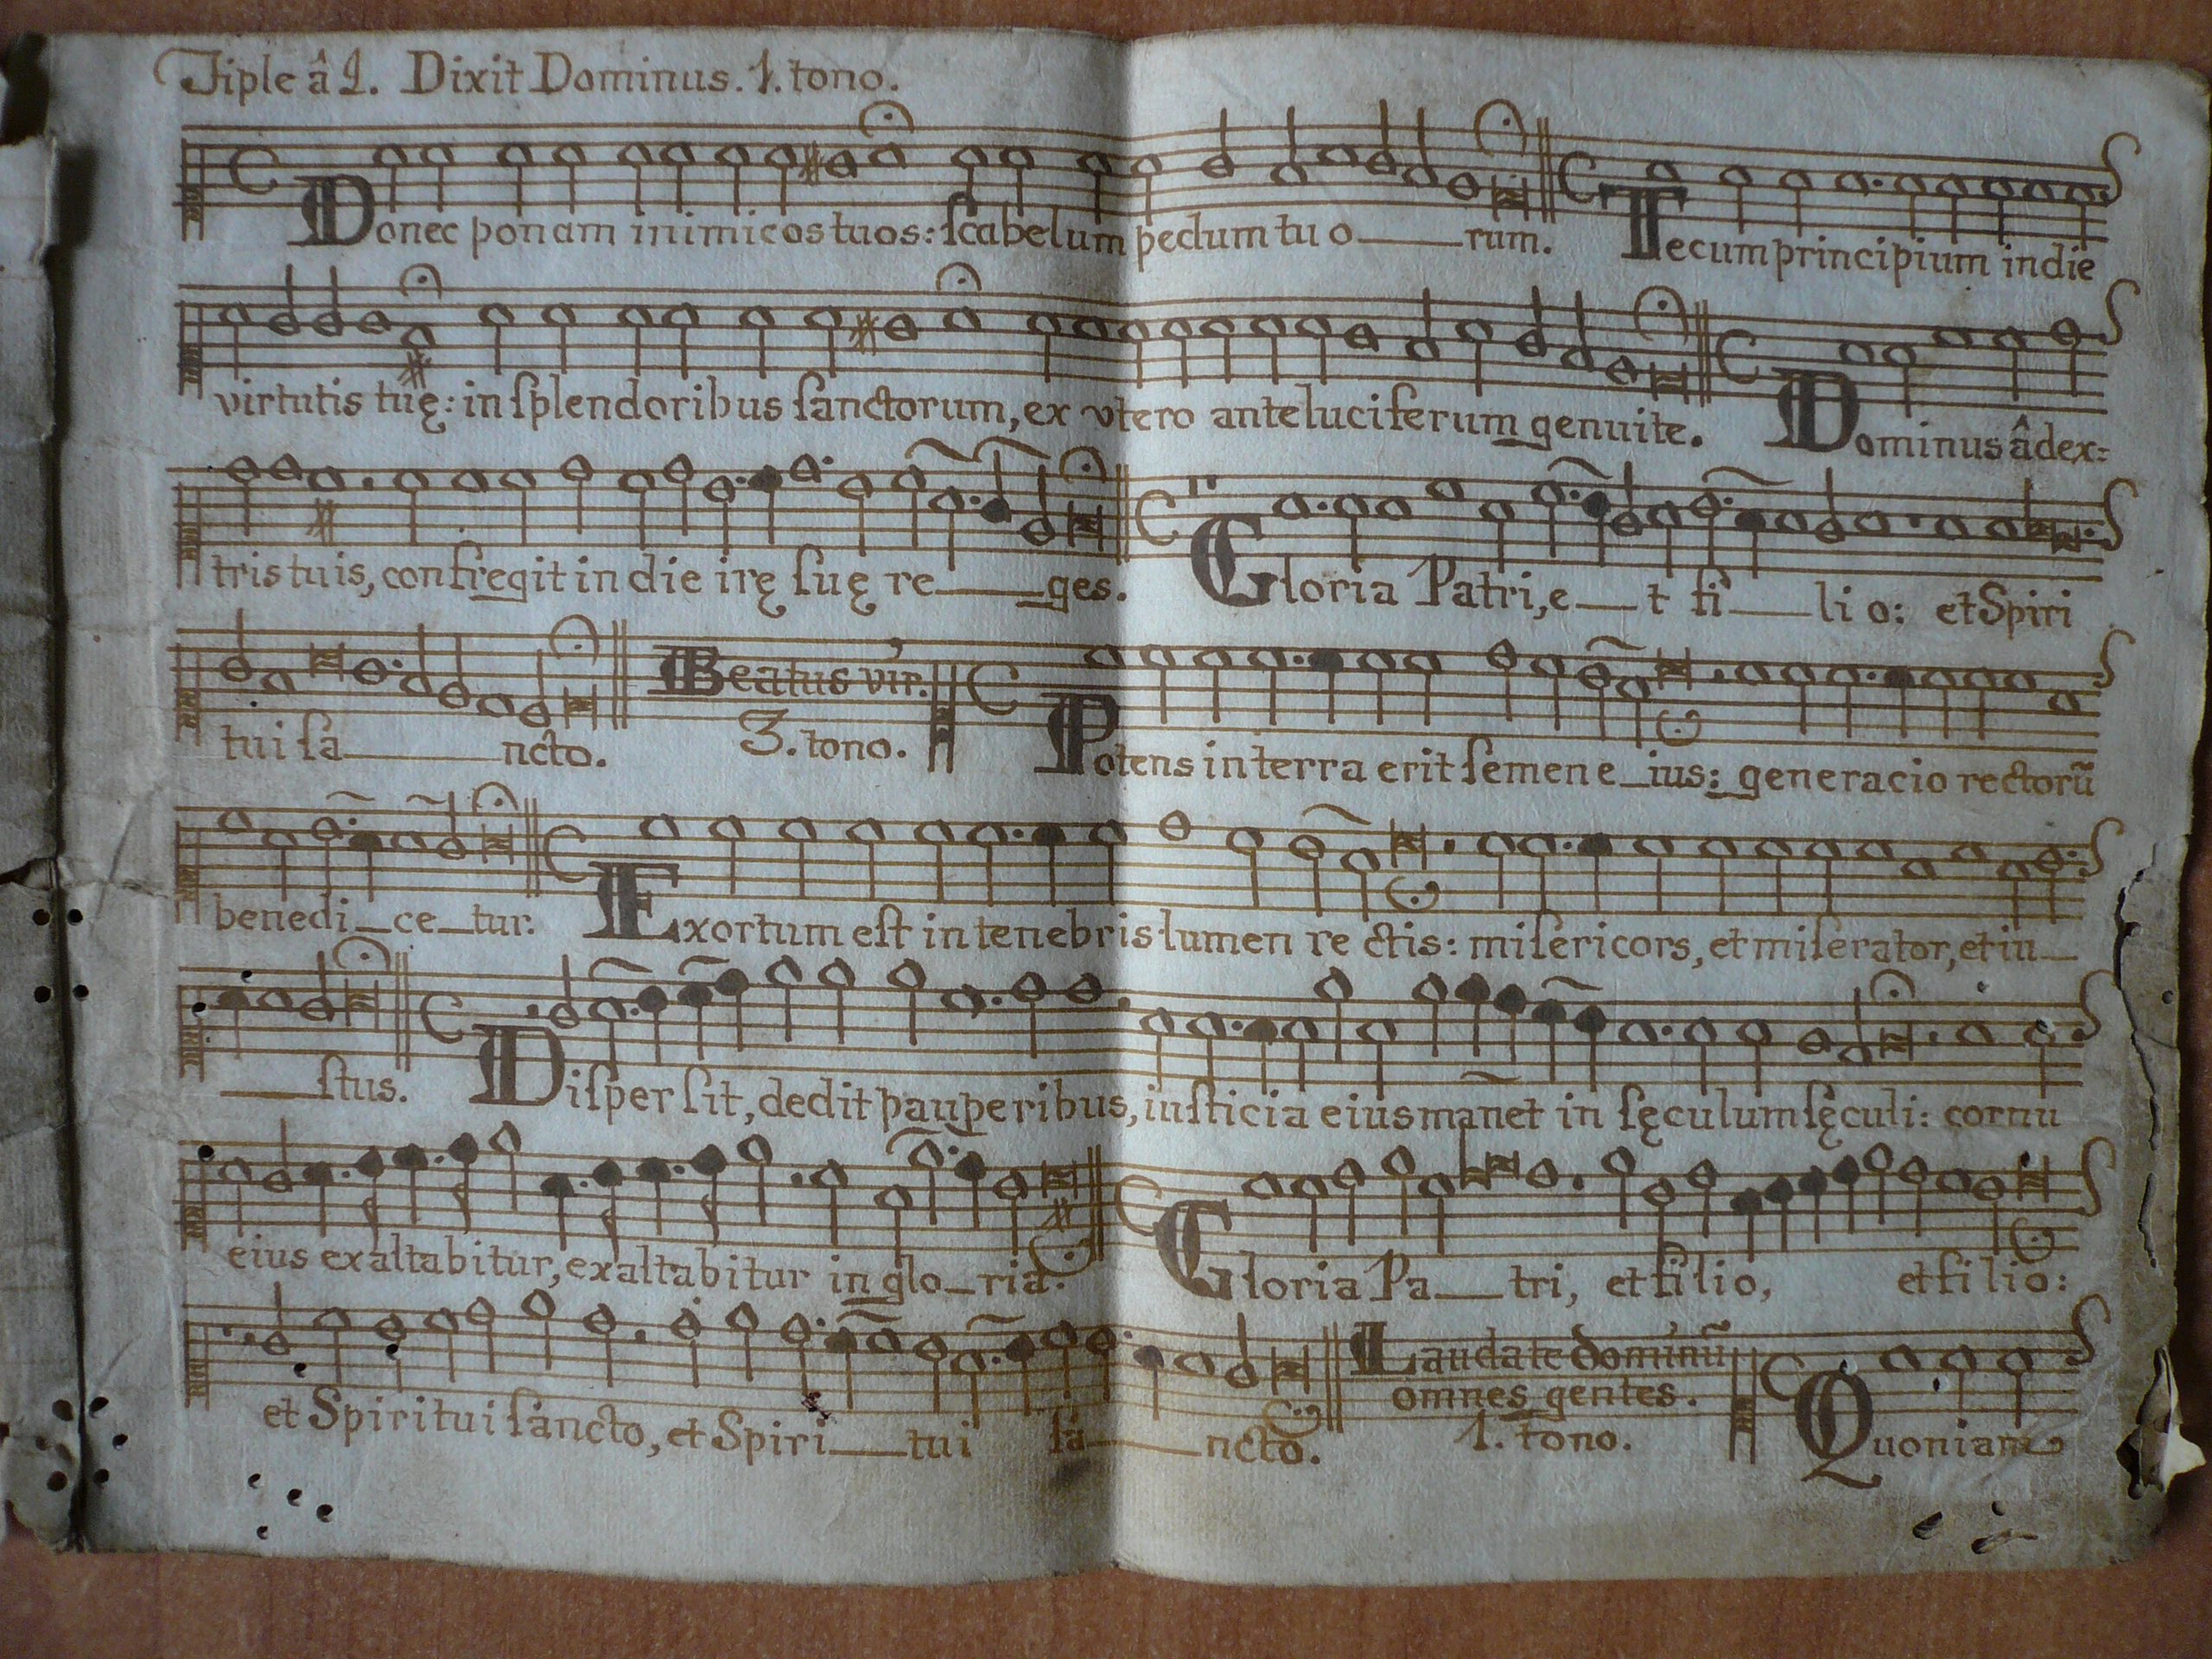 Tiple â 2. Dixit Dominus. 1. tono.
Donec ponam inimicos tuos: ſcabelum pedum tu o___rum. Tecum principium in die
virtutis tuę: in ſplendoribus ſanctorum, ex vtero ante luciferum genuite. Dominus â dex:
tris tuis, confregit in die irę ſuę re___ges. Gloria Patri, e__t fi__li o: et Spiri
tui ſa___ncto. Beatus vir. 3. tono. Potens in terra erit ſemen e_ius: generacio rectorũ
benedi_ce_tur. Exortum eſt in tenebris lumen re ctis: miſericors, et miſerator, et iu_
__ſtus. Diſperſit, dedit pauperibus, iuſticia eius manet in ſęculum ſęculi: cornu
eius exaltabitur, exaltabitur in glo_ria. Gloria Pa__tri, et filio, et filio:
et Spiritui ſancto, et Spiri__tui ſa___ncto. Laudate dominũ omnes gentes. 1. tono. Quoniam